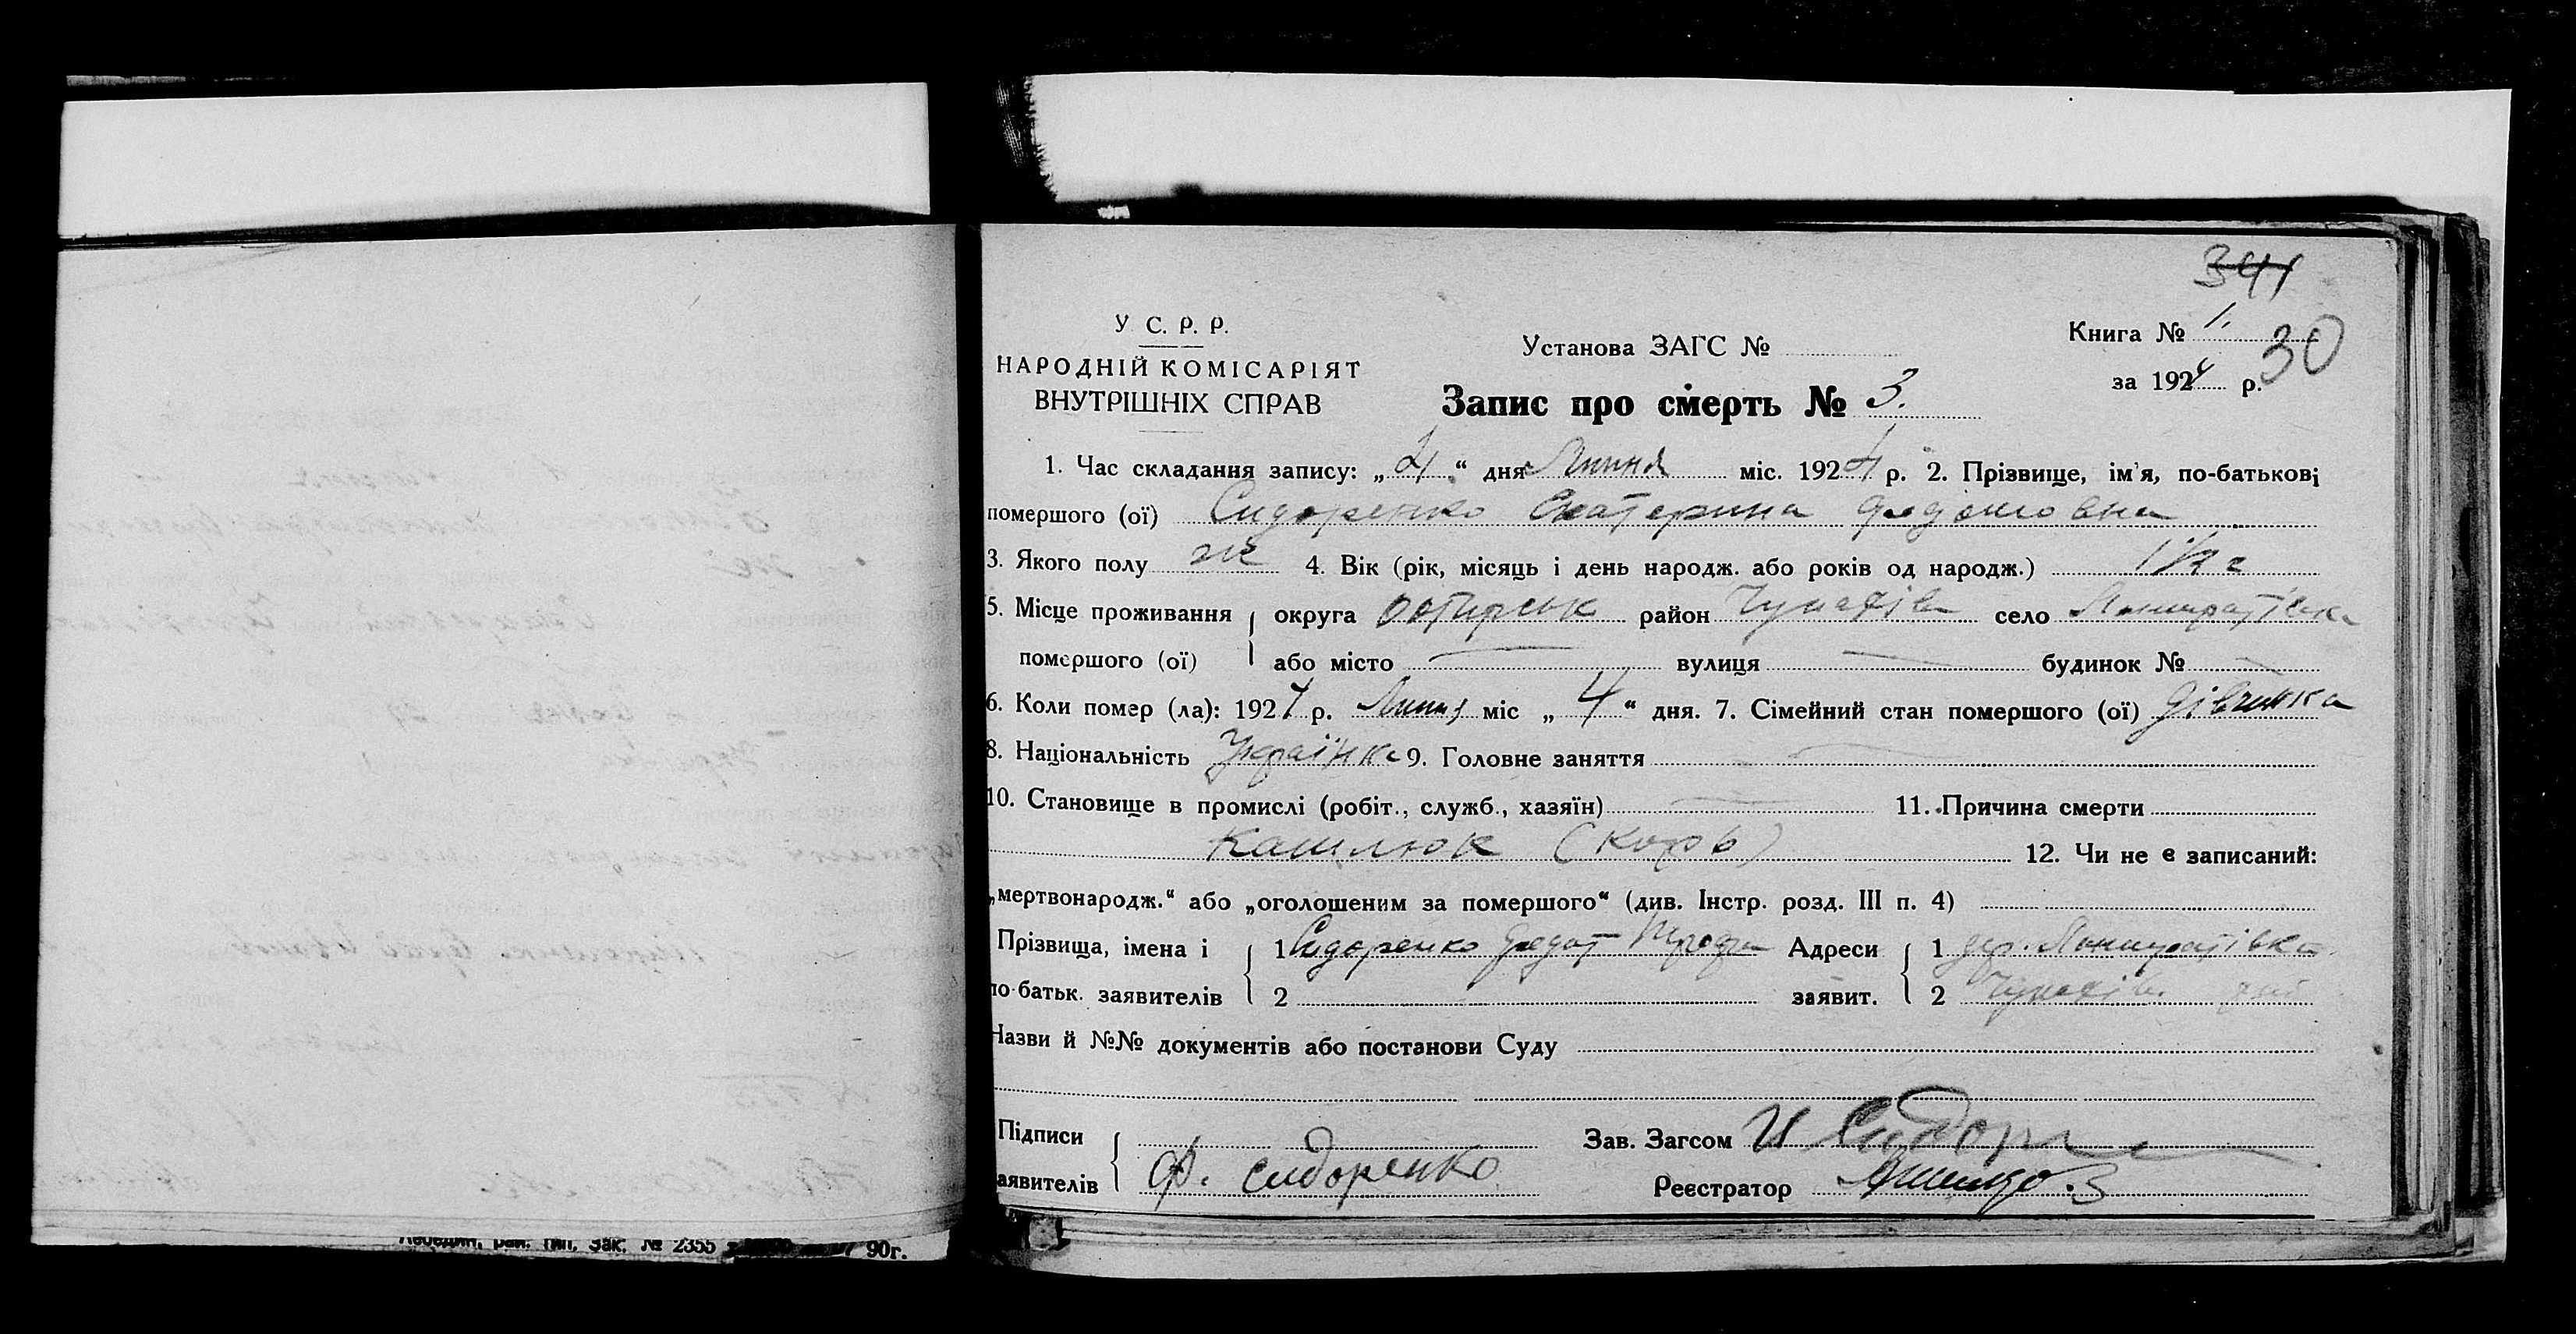 341
У С. Р. Р.
НАРОДНІЙ КОМІСАРІЯТ
ВНУТРІШНІХ СПРАВ
Установа ЗАГС №
Книга № 1.
30
за 1924 р.
Запис про смерть № 3.
1. Час складання запису: „ 4 “ дня Липня міс. 1924 р. 2. Прізвище, ім'я, по-батькові
помершого (ої) Сидоренко Екатерина
3. Якого полу ж 4. Вік (рік, місяць і день народж. або років од народж.)
5. Місце проживання округа район Чупахів село
помершого (ої) або місто — вулиця — будинок № —
6. Коли помер (ла): 1924 р. Липня міс „ 4 “ дня. 7. Сімейний стан помершого (ої) дівчинка
8. Національність Українка 9. Головне заняття —
10. Становище в промислі (робіт., служб., хазяїн) — 11. Причина смерти
Кашлюк (Корь) 12. Чи не є записаний:
„мертвонародж.“ або „оголошеним за помершого“ (див. Інстр. розд. III п. 4)
Прізвища, імена і 1 Сидоренко Федот Адреси 1
по-батьк. заявителів 2 заявит. 2 Чупахів.
Назви й №№ документів або постанови Суду
Підписи Зав. Загсом И Сидор
аявителів Ф. Сидоренко Реєстратор
Лебедин, рай. тип. Зак. № 2355 90г.